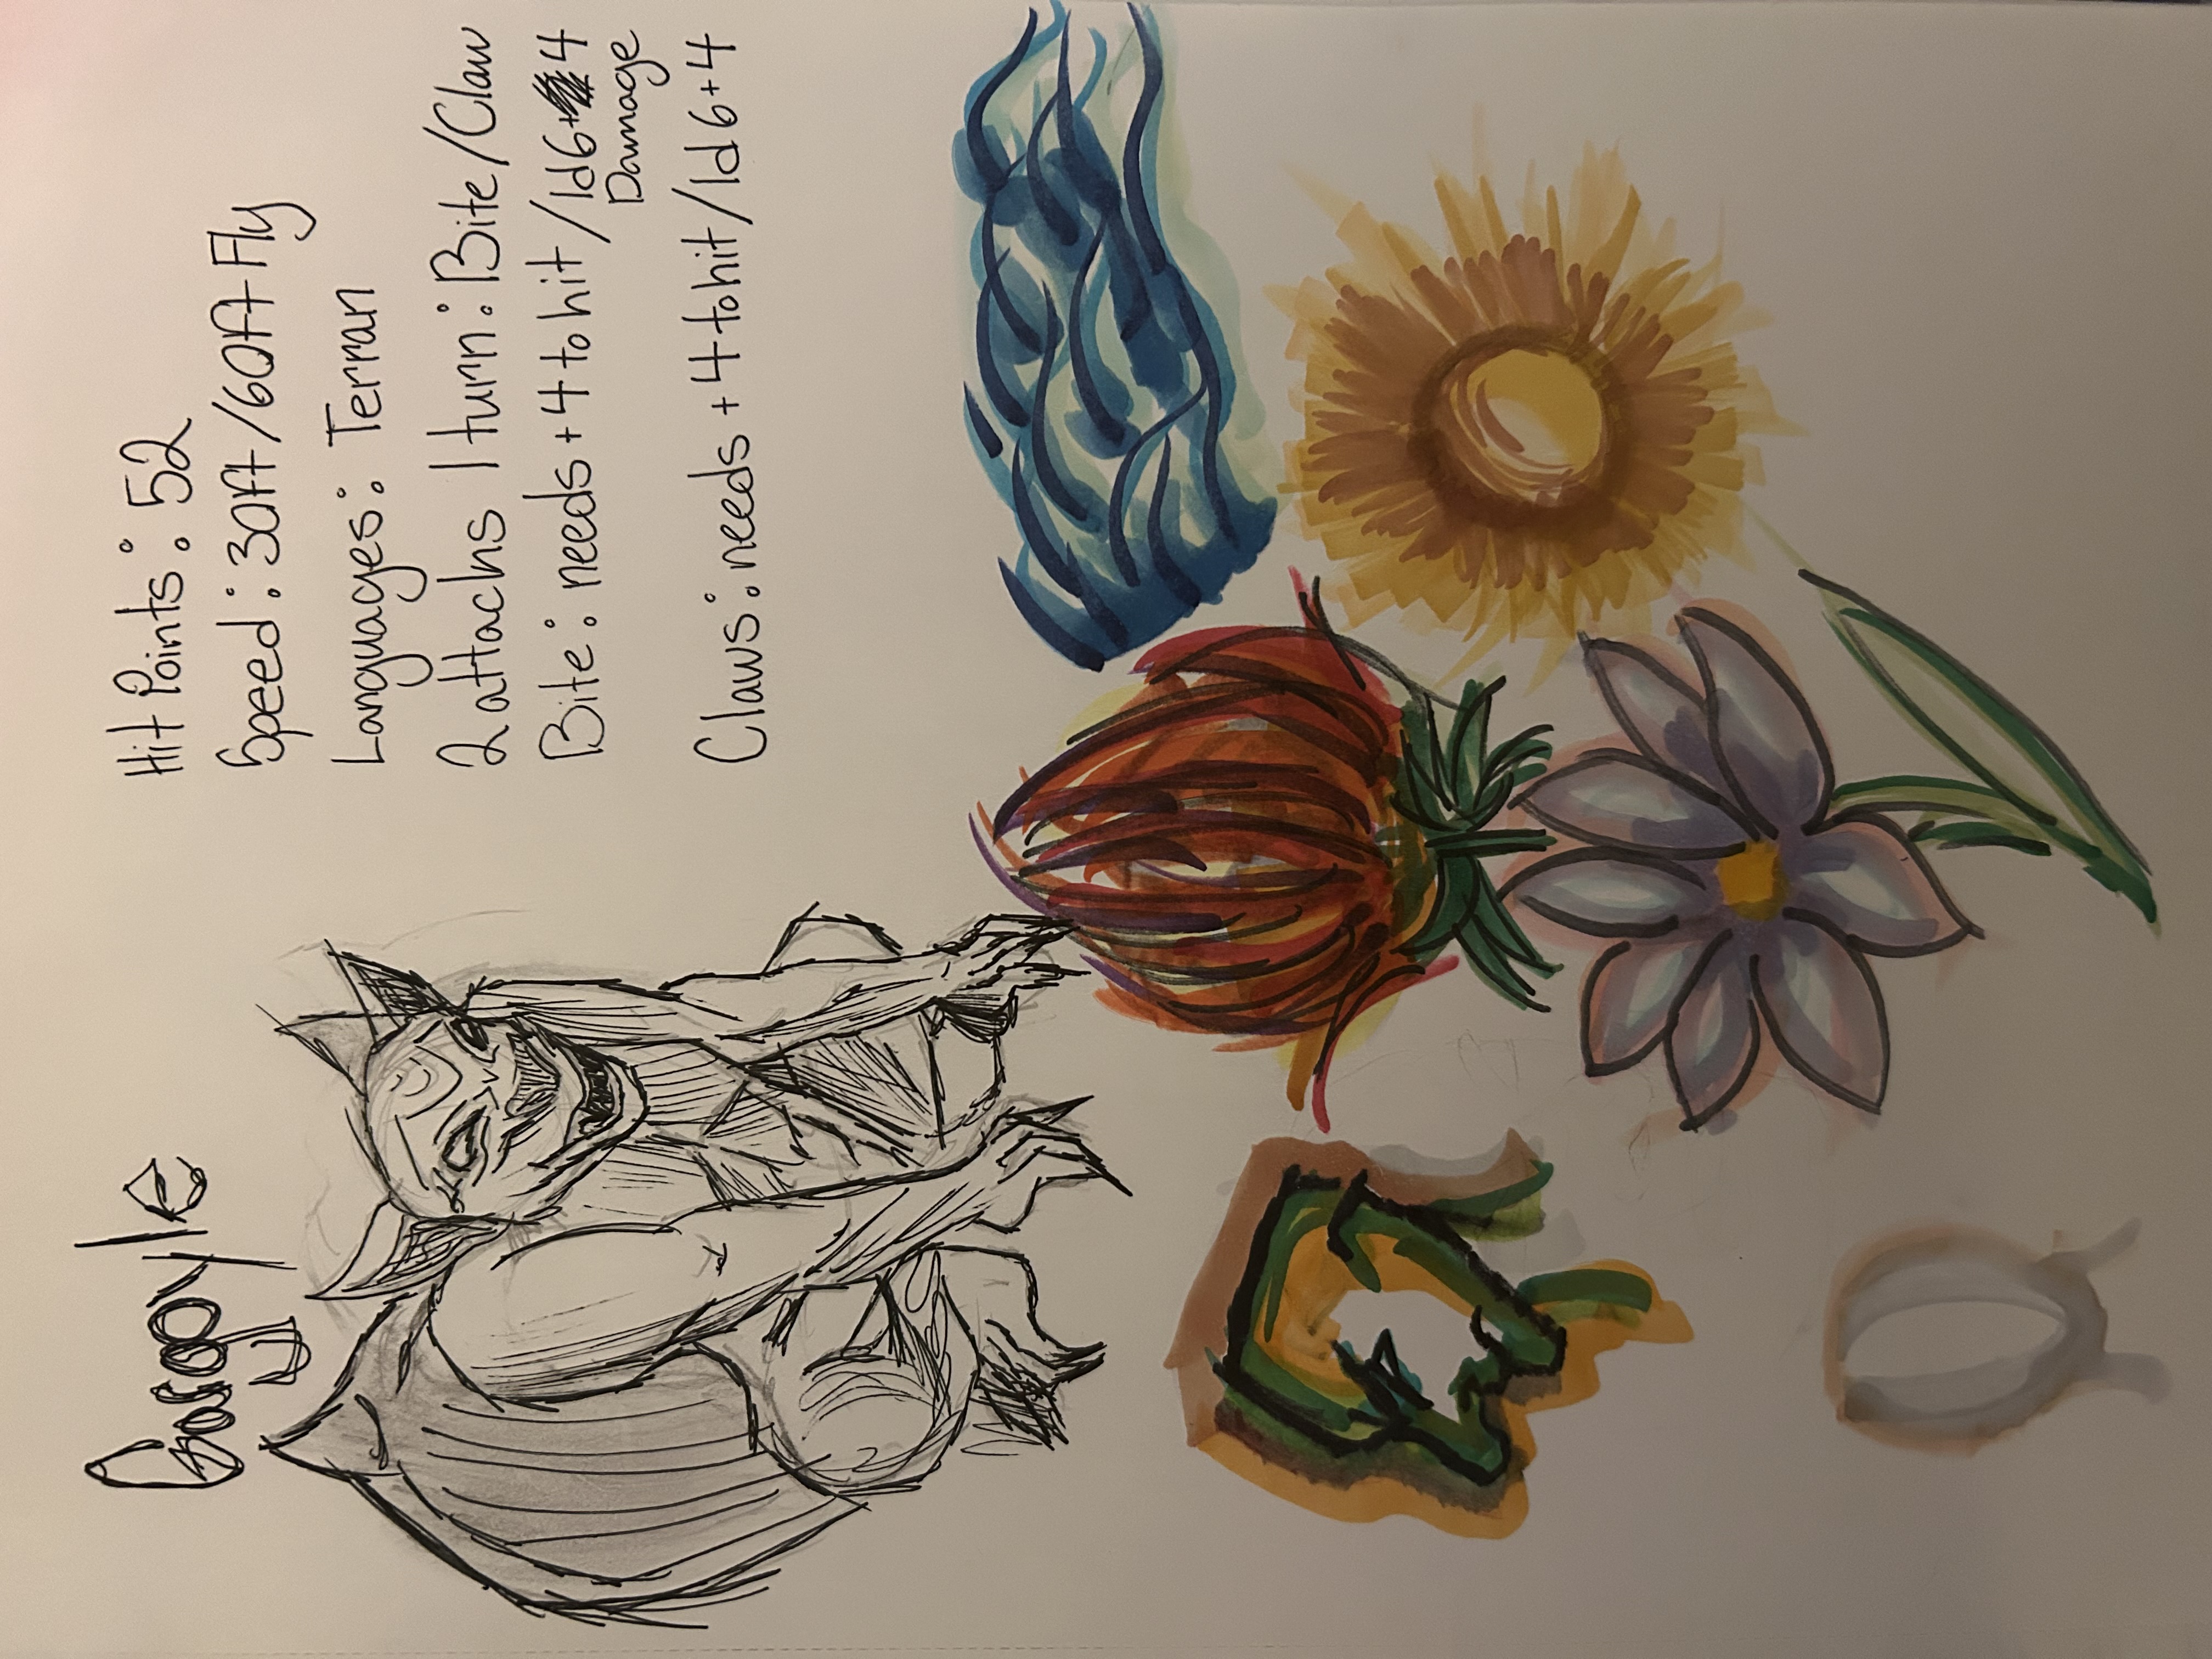 Gargoyle
Hit Points: 52
Speed: 30ft/60ft Fly
Languages: Terran
2 attacks 1 turn: Bite/Claw
Bite: needs +4 to hit/1d6+4
Damage
Claws: needs +4 to hit/1d6+4